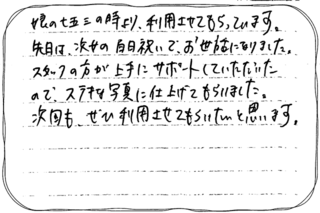 娘の七五三の時より、利用させてもらっています。
先日は、次女の百日祝いで、お世話になりました。
スタッフの方が上手にサポートしていただいた
ので、ステキな写真に仕上げてもらいました。
次回も、ぜひ利用させてもらいたいと思います。